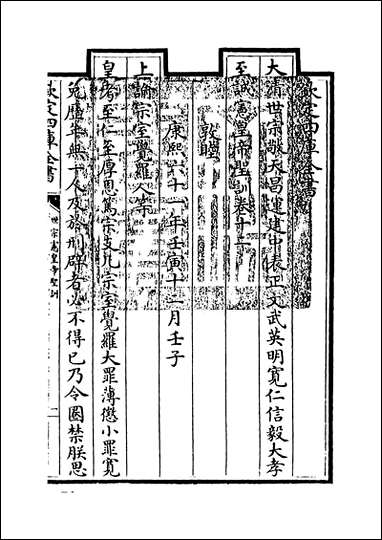 欽定四庫全書
大清世宗敬天昌運建中表正文武英明寬仁信毅大孝
至誠憲皇帝聖訓卷十二
敦睦
康熙六十一年壬寅十二月壬子
上諭宗室覺羅人等
皇考至仁至厚恩篤宗支凡宗室覺羅大罪薄懲小罪寬
免歷年無一人及於刑辟者必不得已乃令圈禁朕思
欽定四庫全書
世宗憲皇帝聖訓
一